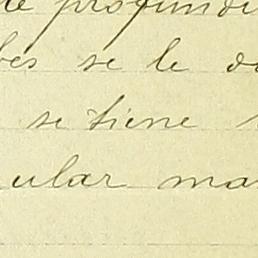 de profundi
bes se le da
se tiene
ular ma